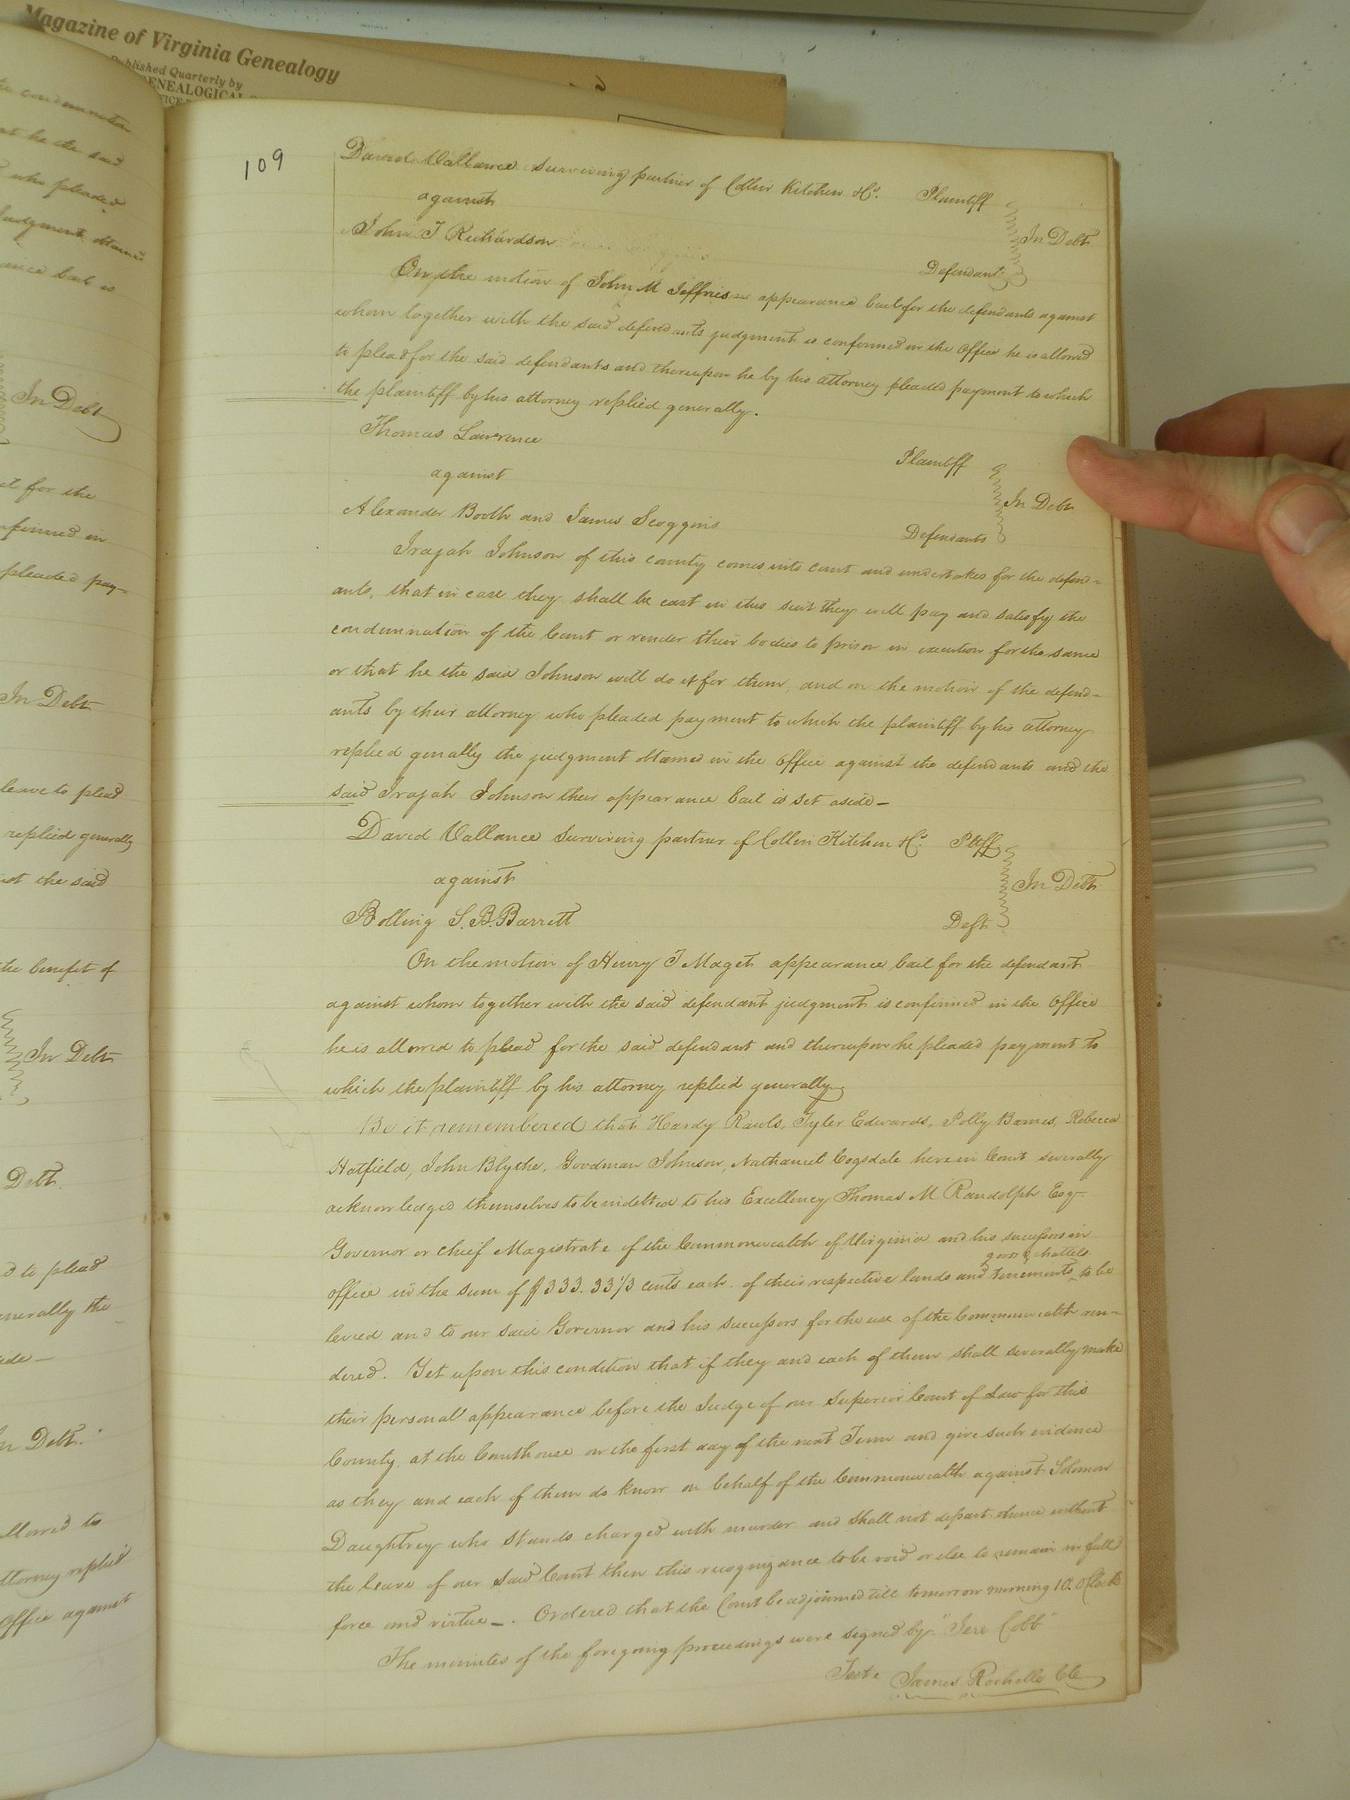 Magazine of Virginia Genealogy
Published Quarterly by
GENEALOGICAL
109
David Vallance surviving partner of Collin Kitchen & Co. Plaintiff
against
In Debt
John T Richardson
Defendant
On the motion of John M Jeffries appearance bail for the defendants against
whom together with the said defendants judgment is confirmed in the Office he is allowed
to plead for the said defendants and thereupon he by his attorney pleaded payment to which
the plaintiff by his attorney replied generally.
Thomas Lawrence
Plaintiff
against
In Debt
Alexander Booth and James Scoggins
Defendants
Irajah Johnson of this county comes into court and undertakes for the defend=
ants, that in case they shall be cast in this suit they will pay and satisfy the
condemnation of the Court or render their bodies to prison in execution for the same
or that he the said Johnson will do it for them, and on the motion of the defend=
ants by their attorney who pleaded payment to which the plaintiff by his attorney
replied genally the judgment obtained in the Office against the defendants and the
said Irajah Johnson their appearance bail is set aside—
David Vallance surviving partner of Collin Kitchen & Co. Pltff
against
In Debt
Bolling S. B. Barrett
Deft
On the motion of Henry T Maget appearance bail for the defendant
against whom together with the said defendant judgment is confirmed in the Office
he is allowed to plead for the said defendant and thereupon he pleaded payment to
which the plaintiff by his attorney replied generally
Be it remembered that Hardy Rawls, Tyler Edwards, Polly Barnes, Rebecca
Hatfield, John Blythe, Goodman Johnson, Nathaniel Cogsdale here in Court severally
acknowledged themselves to be indebted to his Excellency Thomas M Randolph Esq
Governor or chief Magistrate of the Commonwealth of Virginia and his successors in
office in the sum of $333.33 1/3 cents each of their respective lands and tenements goods & chattels to be
levied and to our said Governor and his successors for the use of the Commonwealth ren=
dered. Yet upon this condition that if they and each of them shall severally make
their personal appearance before the Judge of our Superior Court of Law for this
County, at the Courthouse on the first day of the next Term and give such evidence
as they and each of them do know on behalf of the Commonwealth against Solomon
Daughtrey who stands charged with murder and shall not depart thence without
the leave of our said Court then this recognizance to be void or else to remain in full
force and virtue—. Ordered that the Court be adjourned till tomorrow morning 10. OClock
The minutes of the foregoing proceedings were signed by "Jere Cobb"
Teste James Rochelle Clk